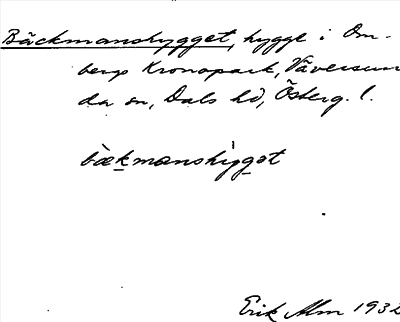 Bäckmanshygget, hygge i Om-
bergs Kronopark, Väversun
da sn, Dals hd, Österg. l.
bækmanshỳgget
Erik Alm 1932